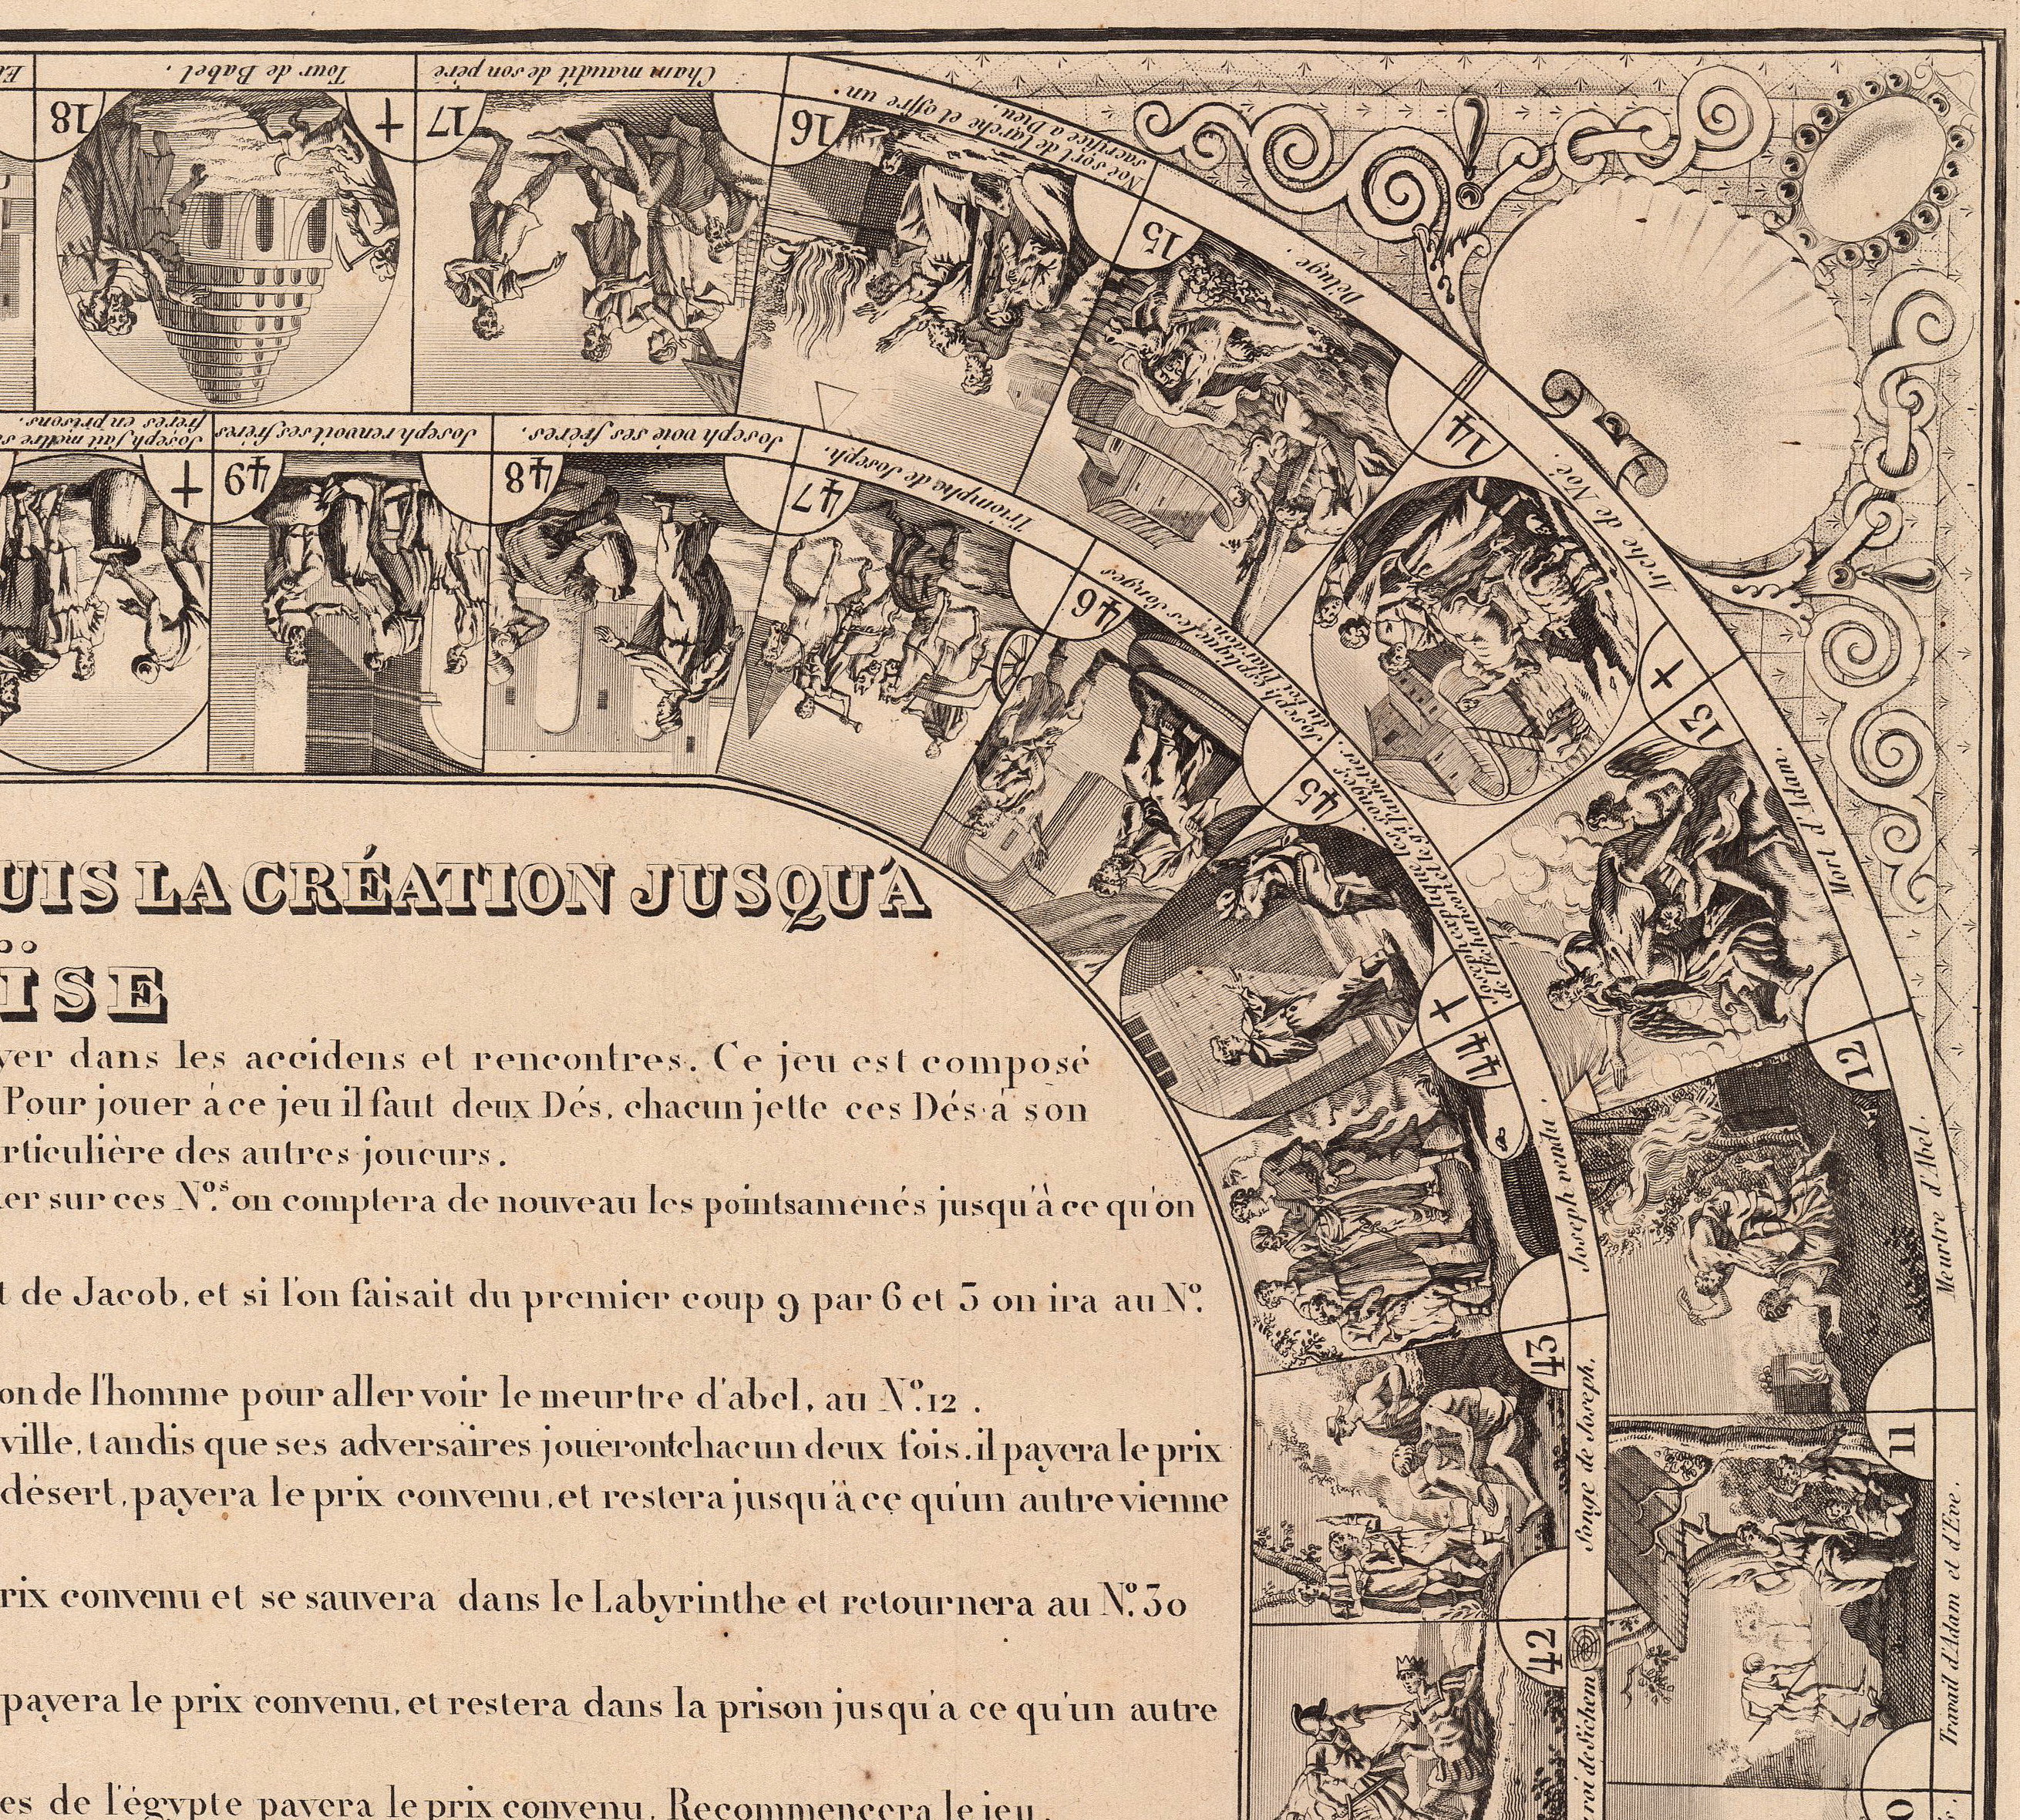 Tour de Babel.
18
Cham maudit de son péré
17
Noé sort de l'arche et offre un
sacrifice a Dieu.
16
Déluge.
15
14
Arche de Noé.
Mort d'Adam.
13
Meurtre d'Abel.
12
Travail d'Adam et d'Eve.
11
Joseph fait mettre
frères en prisons.
Joseph renvoit ses frères
49
Joseph voie ses frères.
48
Triomphe de Joseph.
47
Joseph explique les songes
du Roi Pharaon.
46
Joseph explique les songes
de l'échanson et gd. pannetier.
45
Joseph vendu.
44
Songe de Joseph.
43
roi de Sichem
42
UIS LA CRÉATION JUSQU'À
ÏSE
yer dans les accidens et rencontres. Ce jeu est composé
Pour jouer à ce jeu il faut deux Dés, chacun jette ces Dés à son
rticulière des autres joueurs.
er sur ces Nos. on comptera de nouveau les points amenés jusqu'à ce qu'on
t de Jacob, et si l'on faisait du premier coup 9 par 6 et 3 on ira au No.
on de l'homme pour aller voir le meurtre d'abel, au No. 12.
ville, tandis que ses adversaires joueront chacun deux fois. il payera le prix
désert, payera le prix convenu, et restera jusqu'à ce qu'un autre vienne
rix convenu et se sauvera dans le Labyrinthe et retournera au No. 30
payera le prix convenu, et restera dans la prison jusqu'a ce qu'un autre
es de l'égypte payera le prix convenu. Recommencera le jeu.